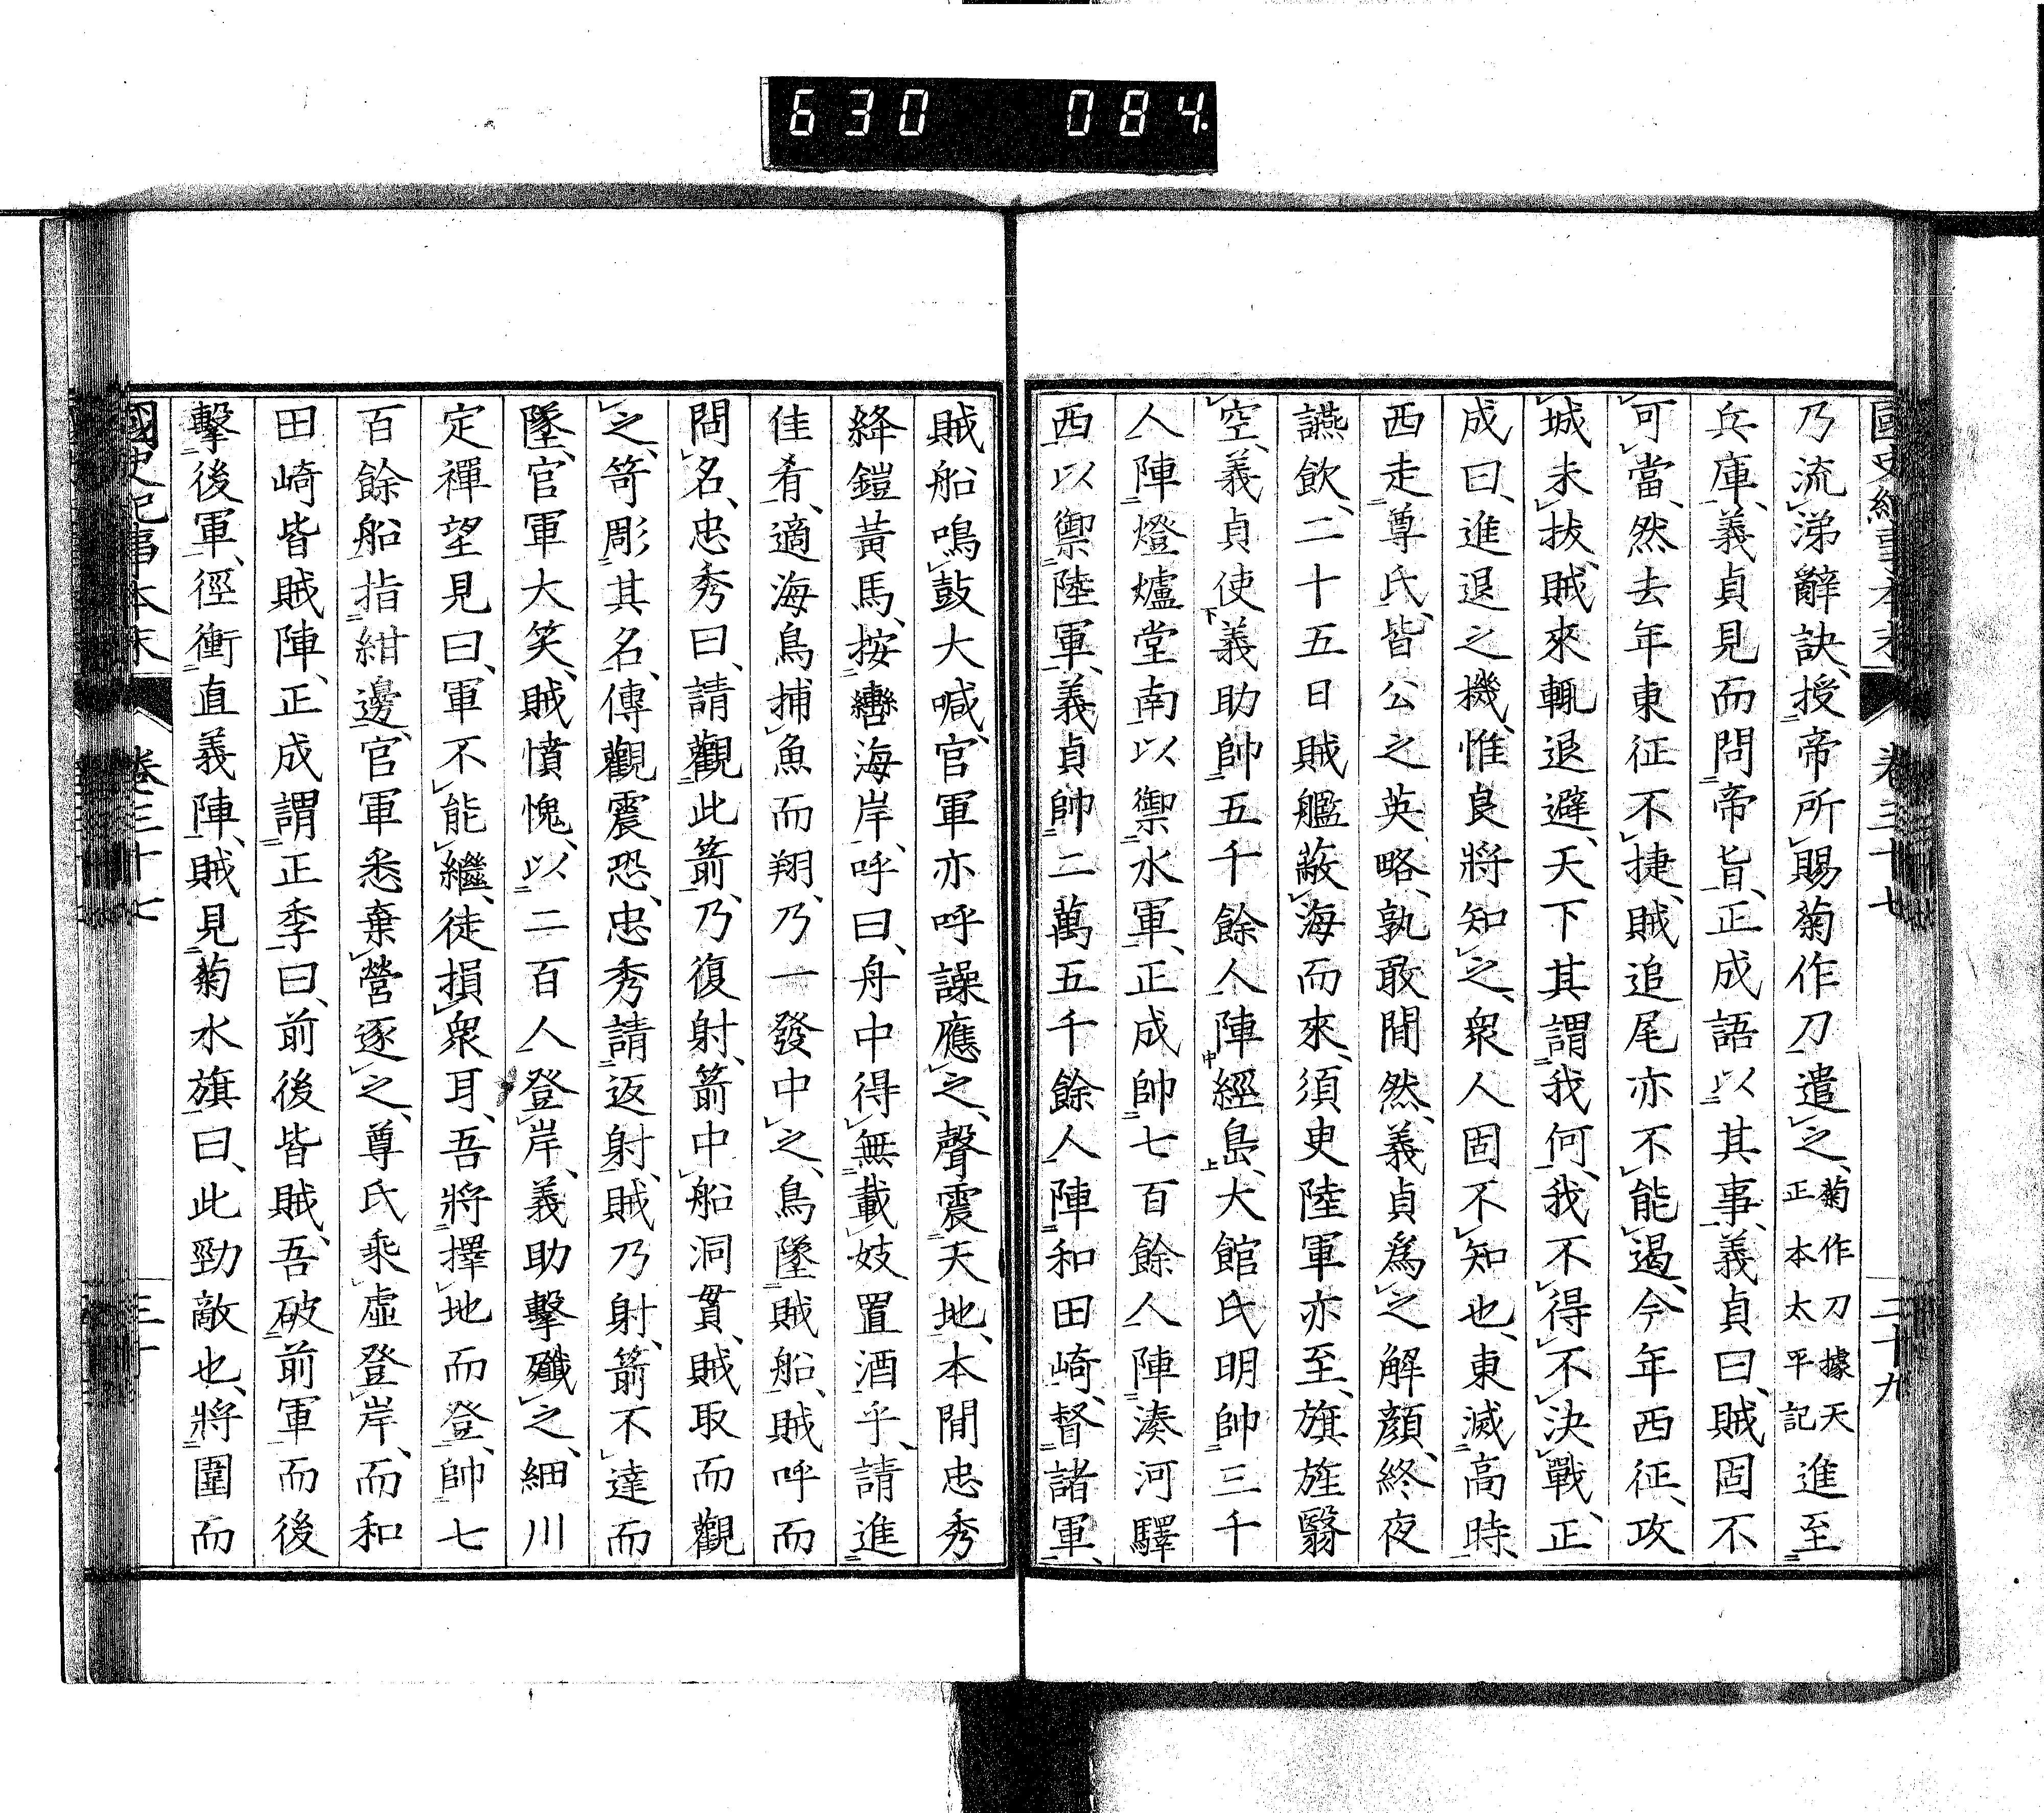 630 084
國史紀事本末 卷三十七 二十九
乃流涕辭訣、授帝所賜菊作刀遣之、菊作刀據天正本太平記進至
兵庫、義貞見而問帝旨、正成語以其事、義貞曰、賊固不
可當、然去年東征不捷、賊追尾亦不能遏、今年西征、攻
城未拔、賊來輒退避、天下其謂我何、我不得不決戰、正
成曰、進退之機、惟良將知之、衆人固不知也、東滅高時、
西走尊氏、皆公之英略、孰敢間然、義貞爲之解顏、終夜
讌飲、二十五日賊艦蔽海而來、須臾陸軍亦至、旗旌翳
空、義貞使義助帥五千餘人陣經島、大館氏明帥三千
人陣燈爐堂南以禦水軍、正成帥七百餘人陣湊河驛
西以禦陸軍、義貞帥二萬五千餘人陣和田崎、督諸軍、
賊船鳴鼓大喊、官軍亦呼譟應之、聲震天地、本間忠秀
絳鎧黃馬、按轡海岸、呼曰、舟中得無載妓置酒乎、請進
佳肴、適海鳥捕魚而翔、乃一發中之、鳥墜賊船、賊呼而
問名、忠秀曰、請觀此箭、乃復射、箭中船洞貫、賊取而觀
之、笴彫其名、傳觀震恐、忠秀請返射、賊乃射、箭不達而
墜、官軍大笑、賊憤愧、以二百人登岸、義助擊殲之、細川
定禪望見曰、軍不能繼、徒損衆耳、吾將擇地而登、帥七
百餘船指紺邊、官軍悉棄營逐之、尊氏乘虛登岸、而和
田崎皆賊陣、正成謂正季曰、前後皆賊、吾破前軍而後
擊後軍、徑衝直義陣、賊見菊水旗曰、此勁敵也、將圍而
國史紀事本末 卷三十七 三十